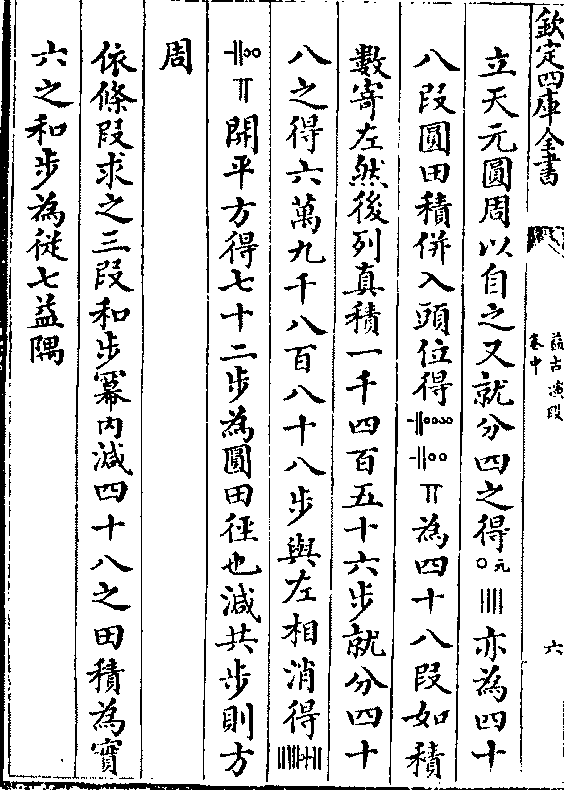 欽定四庫全書
益古演段
卷中
六
立天元圓周以自之又就分四之得〇元||||亦為四十
八段圓田積併入頭位得為四十八段如積
數寄左然後列真積一千四百五十六步就分四十
八之得六萬九千八百八十八步與左相消得
開平方得七十二步為圓田徑也減共步則方
周
依條段求之三段和步冪内減四十八之田積為實
六之和步為從七益隅